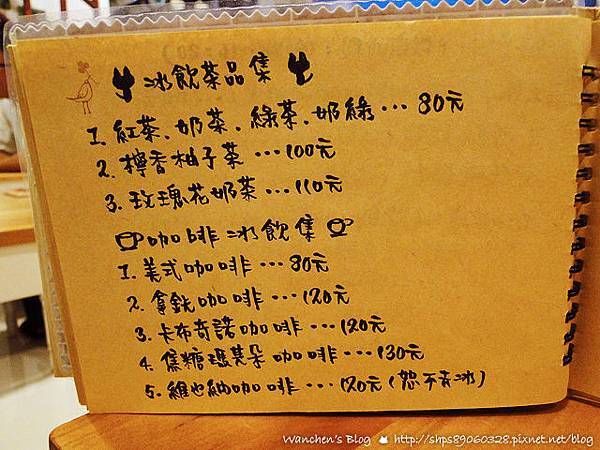 冰飲茶品集
1. 紅茶、奶茶、綠茶、奶綠… 80元
2. 檸香柚子茶…100元
3. 玫瑰花奶茶…110元
咖啡冰飲集
1. 美式咖啡…80元
2. 拿鉄咖啡…120元
3. 卡布奇諾咖啡…120元
4. 焦糖瑪其朵咖啡…130元
5. 維也納咖啡…120元(恕不去冰)
Wanchen's Blog http://shps89060328.pixnet.net/blog